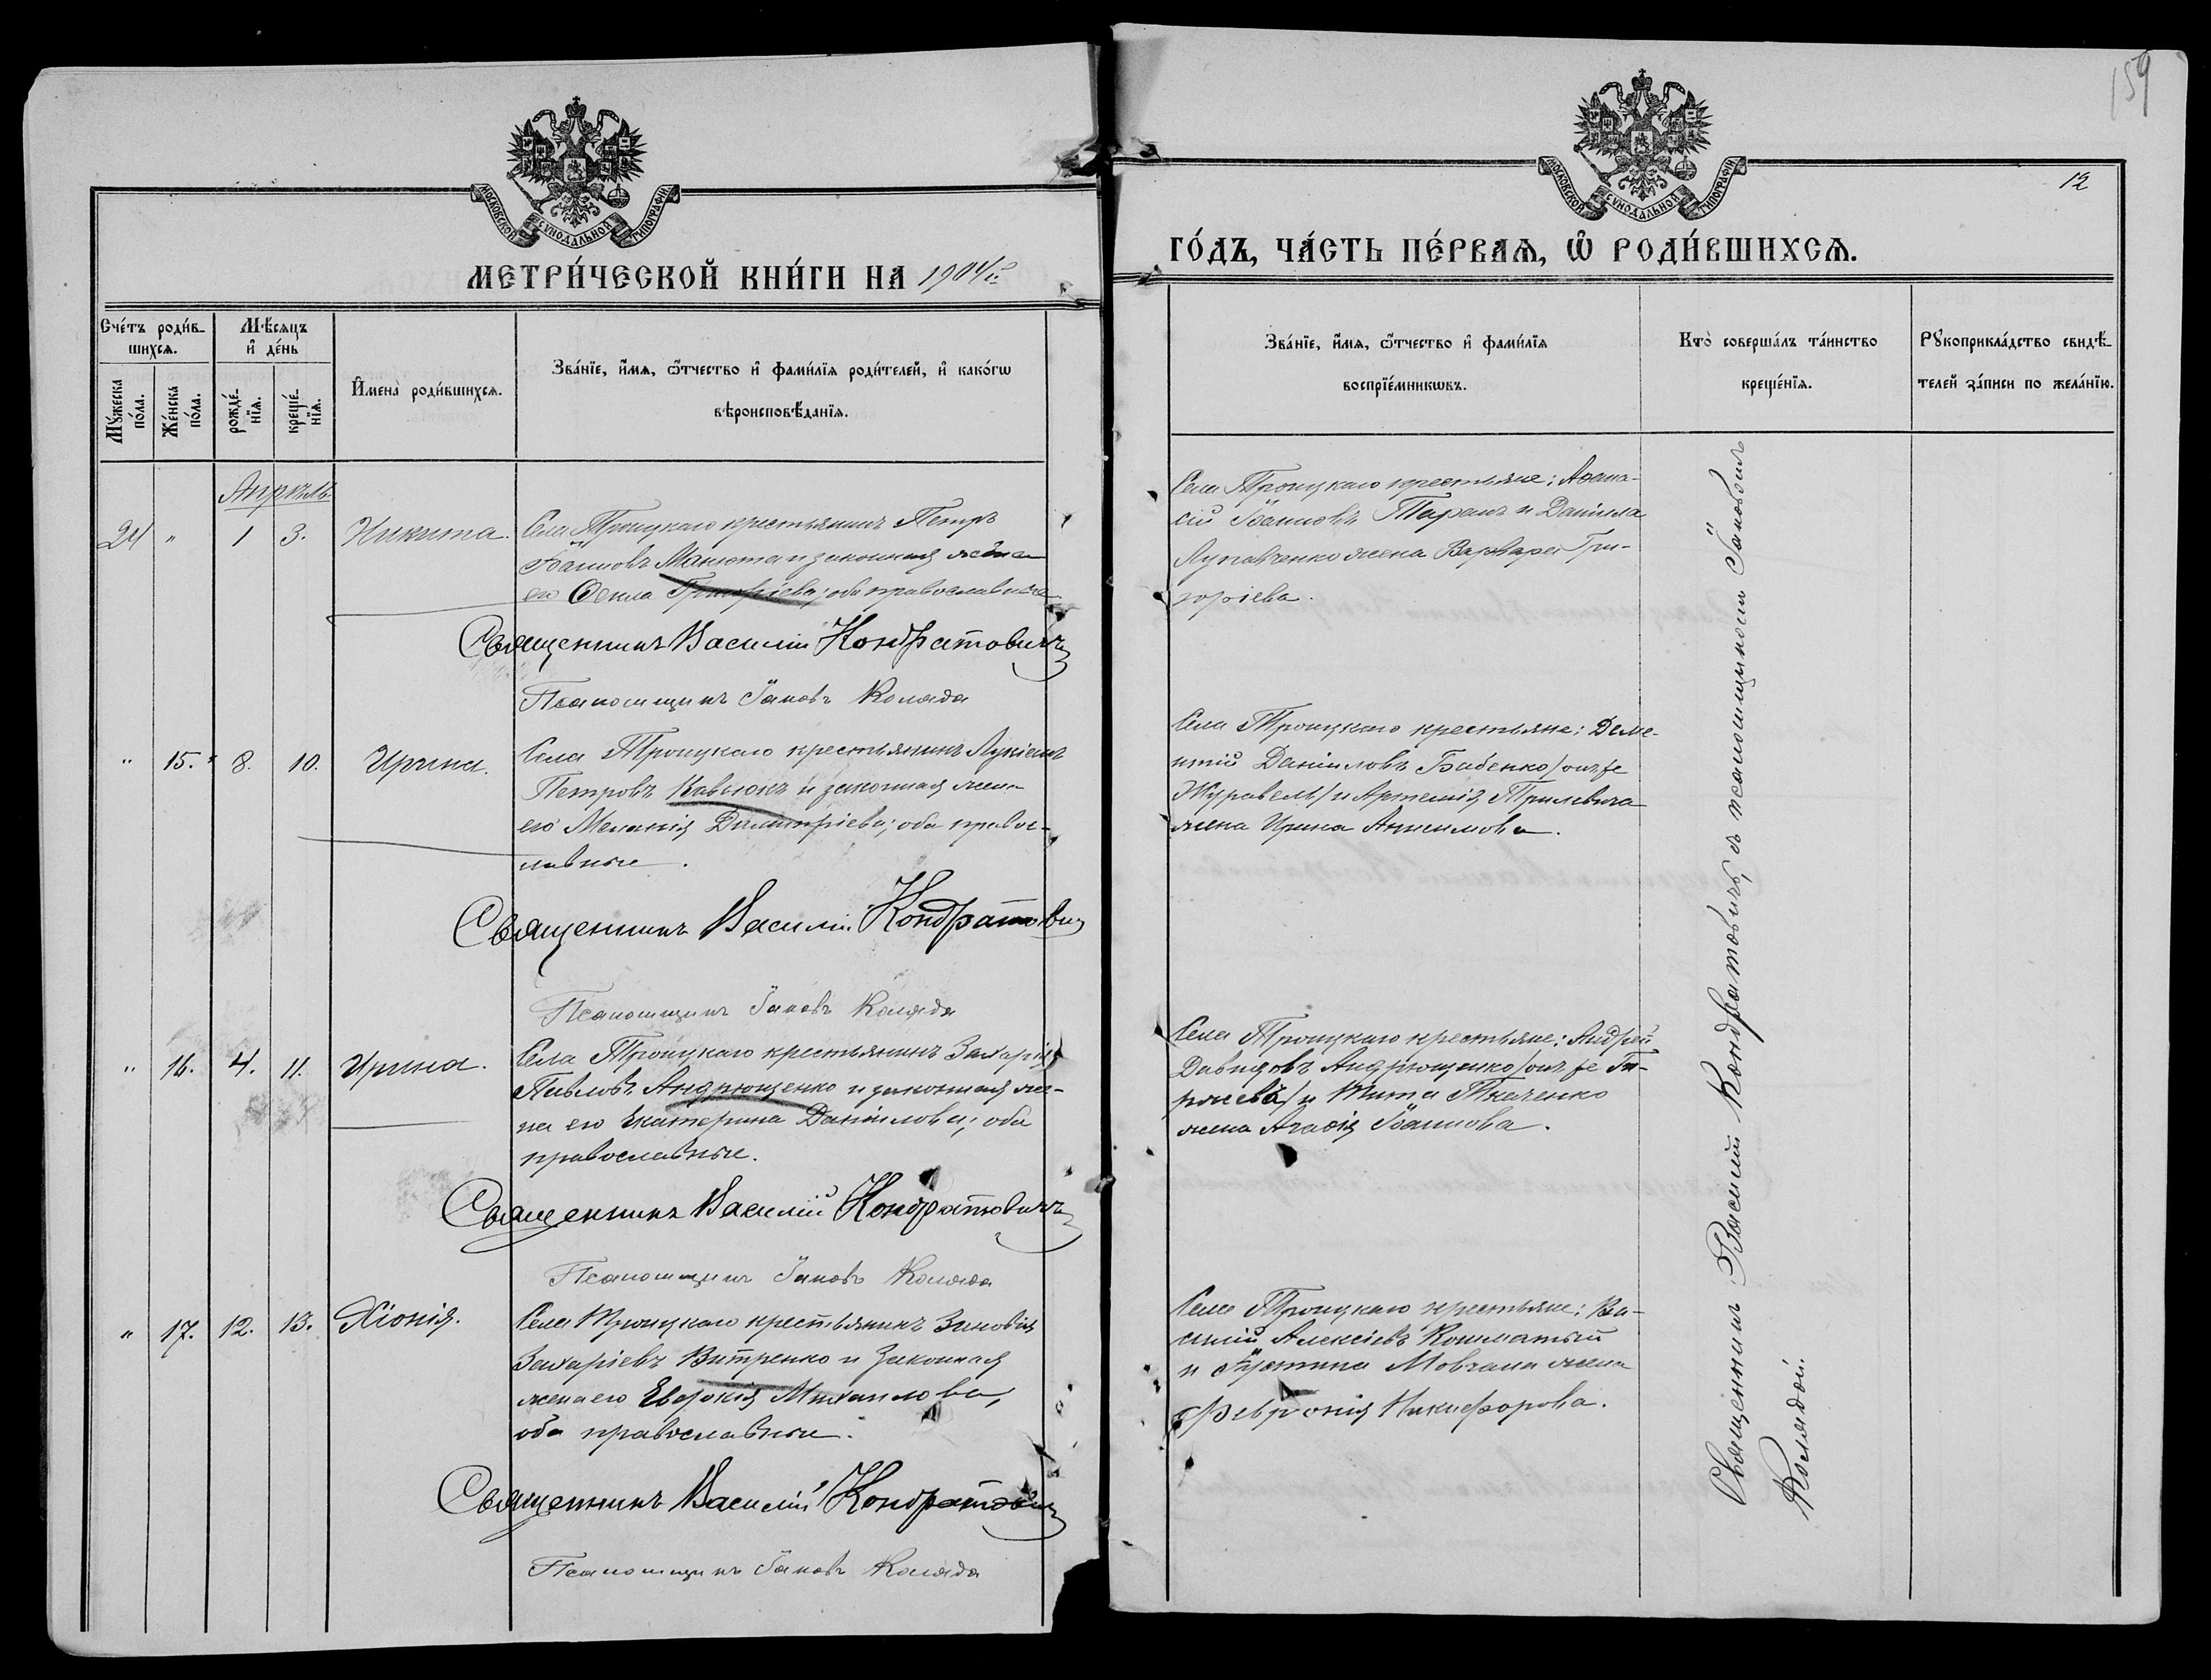 159
12
МОСКОВСКОЙ СѴНОДАЛЬНОЙ ТИПОГРАФІИ.
МОСКОВСКОЙ СѴНОДАЛЬНОЙ ТИПОГРАФІИ.
МЕТРИ́ЧЕСКОЙ КНИ́ГИ НА 1904й
ГО́ДЪ, ЧА́СТЬ ПЕ́РВАѦ, Ѡ҆ РОДИ́ВШИХСѦ.
Сче́тъ роди́в-
шихсѧ.
Мꙋ́жеска по́ла.
Же́нска по́ла.
Мѣ́сѧцъ
и҆ де́нь
рожде́-
нїѧ.
креще́-
нїѧ.
И҆мена̀ роди́вшихсѧ.
Зва́нїе, и҆́мѧ, ѻ҆́тчество и҆ фами́лїѧ роди́телей, и҆ како́гѡ
вѣроисповѣ́данїѧ.
Зва́нїе, и҆́мѧ, ѻ҆́тчество и҆ фами́лїѧ
воспрїе́мникѡвъ.
Кто̀ соверша́лъ та́инство
креще́нїѧ.
Рꙋкоприкла́дство свидѣ́-
телей за́писи по жела́нїю.
Апрѣль
24 " 1 3. Никита.
Села Троицкаго крестьянинъ Петръ
Іоанновъ Манюта и законная жена
его Ѳекла Григоріева; оба православные
Священникъ Василій Кондратовичъ
Псаломщикъ Іаковъ Коляда
Села Троицкаго крестьяне: Аѳана-
сій Іоанновъ Таранъ и Даніила
жена Варвара Гри-
горіева.
" 15. 8. 10. Ирина.
Села Троицкаго крестьянинъ Лукіанъ
Петровъ и законная жена
его Меланія Димитріева; оба правос-
лавные.
Священникъ Василій Кондратович
Псаломщикъ Іаковъ Коляда
Села Троицкаго крестьяне: Деме-
нтій Даніиловъ Бабенко /онъ же
Журавель/ и Артемія
жена Ирина
" 16. 4. 11. Ирина.
Села Троицкаго крестьянинъ Захарія
Павловъ Андрющенко и законная же-
на его Екатерина Даніилова; оба
православные.
Священникъ Василій Кондратовичъ
Псаломщикъ Іаковъ Коляда
Села Троицкаго крестьяне: Андрей
Давидовъ Андрющенко /онъ же
и Тита Ткаченко
жена Агаѳія Іоаннова.
" 17. 12. 13. Хіонія.
Села Троицкаго крестьянинъ Зиновій
Захаріевъ Витренко и законная
жена его Евдокія Михаилова,
оба православные.
Священникъ Василій Кондратович
Псаломщикъ Іаковъ Коляда
Села Троицкаго крестьяне: Ва-
силій Алексіевъ Кошматый
и Іустина Мовчана жена
Февронія Никифорова.
Священникъ Василій Кондратовичъ, съ псаломщикомъ Іаковомъ
Колядой.